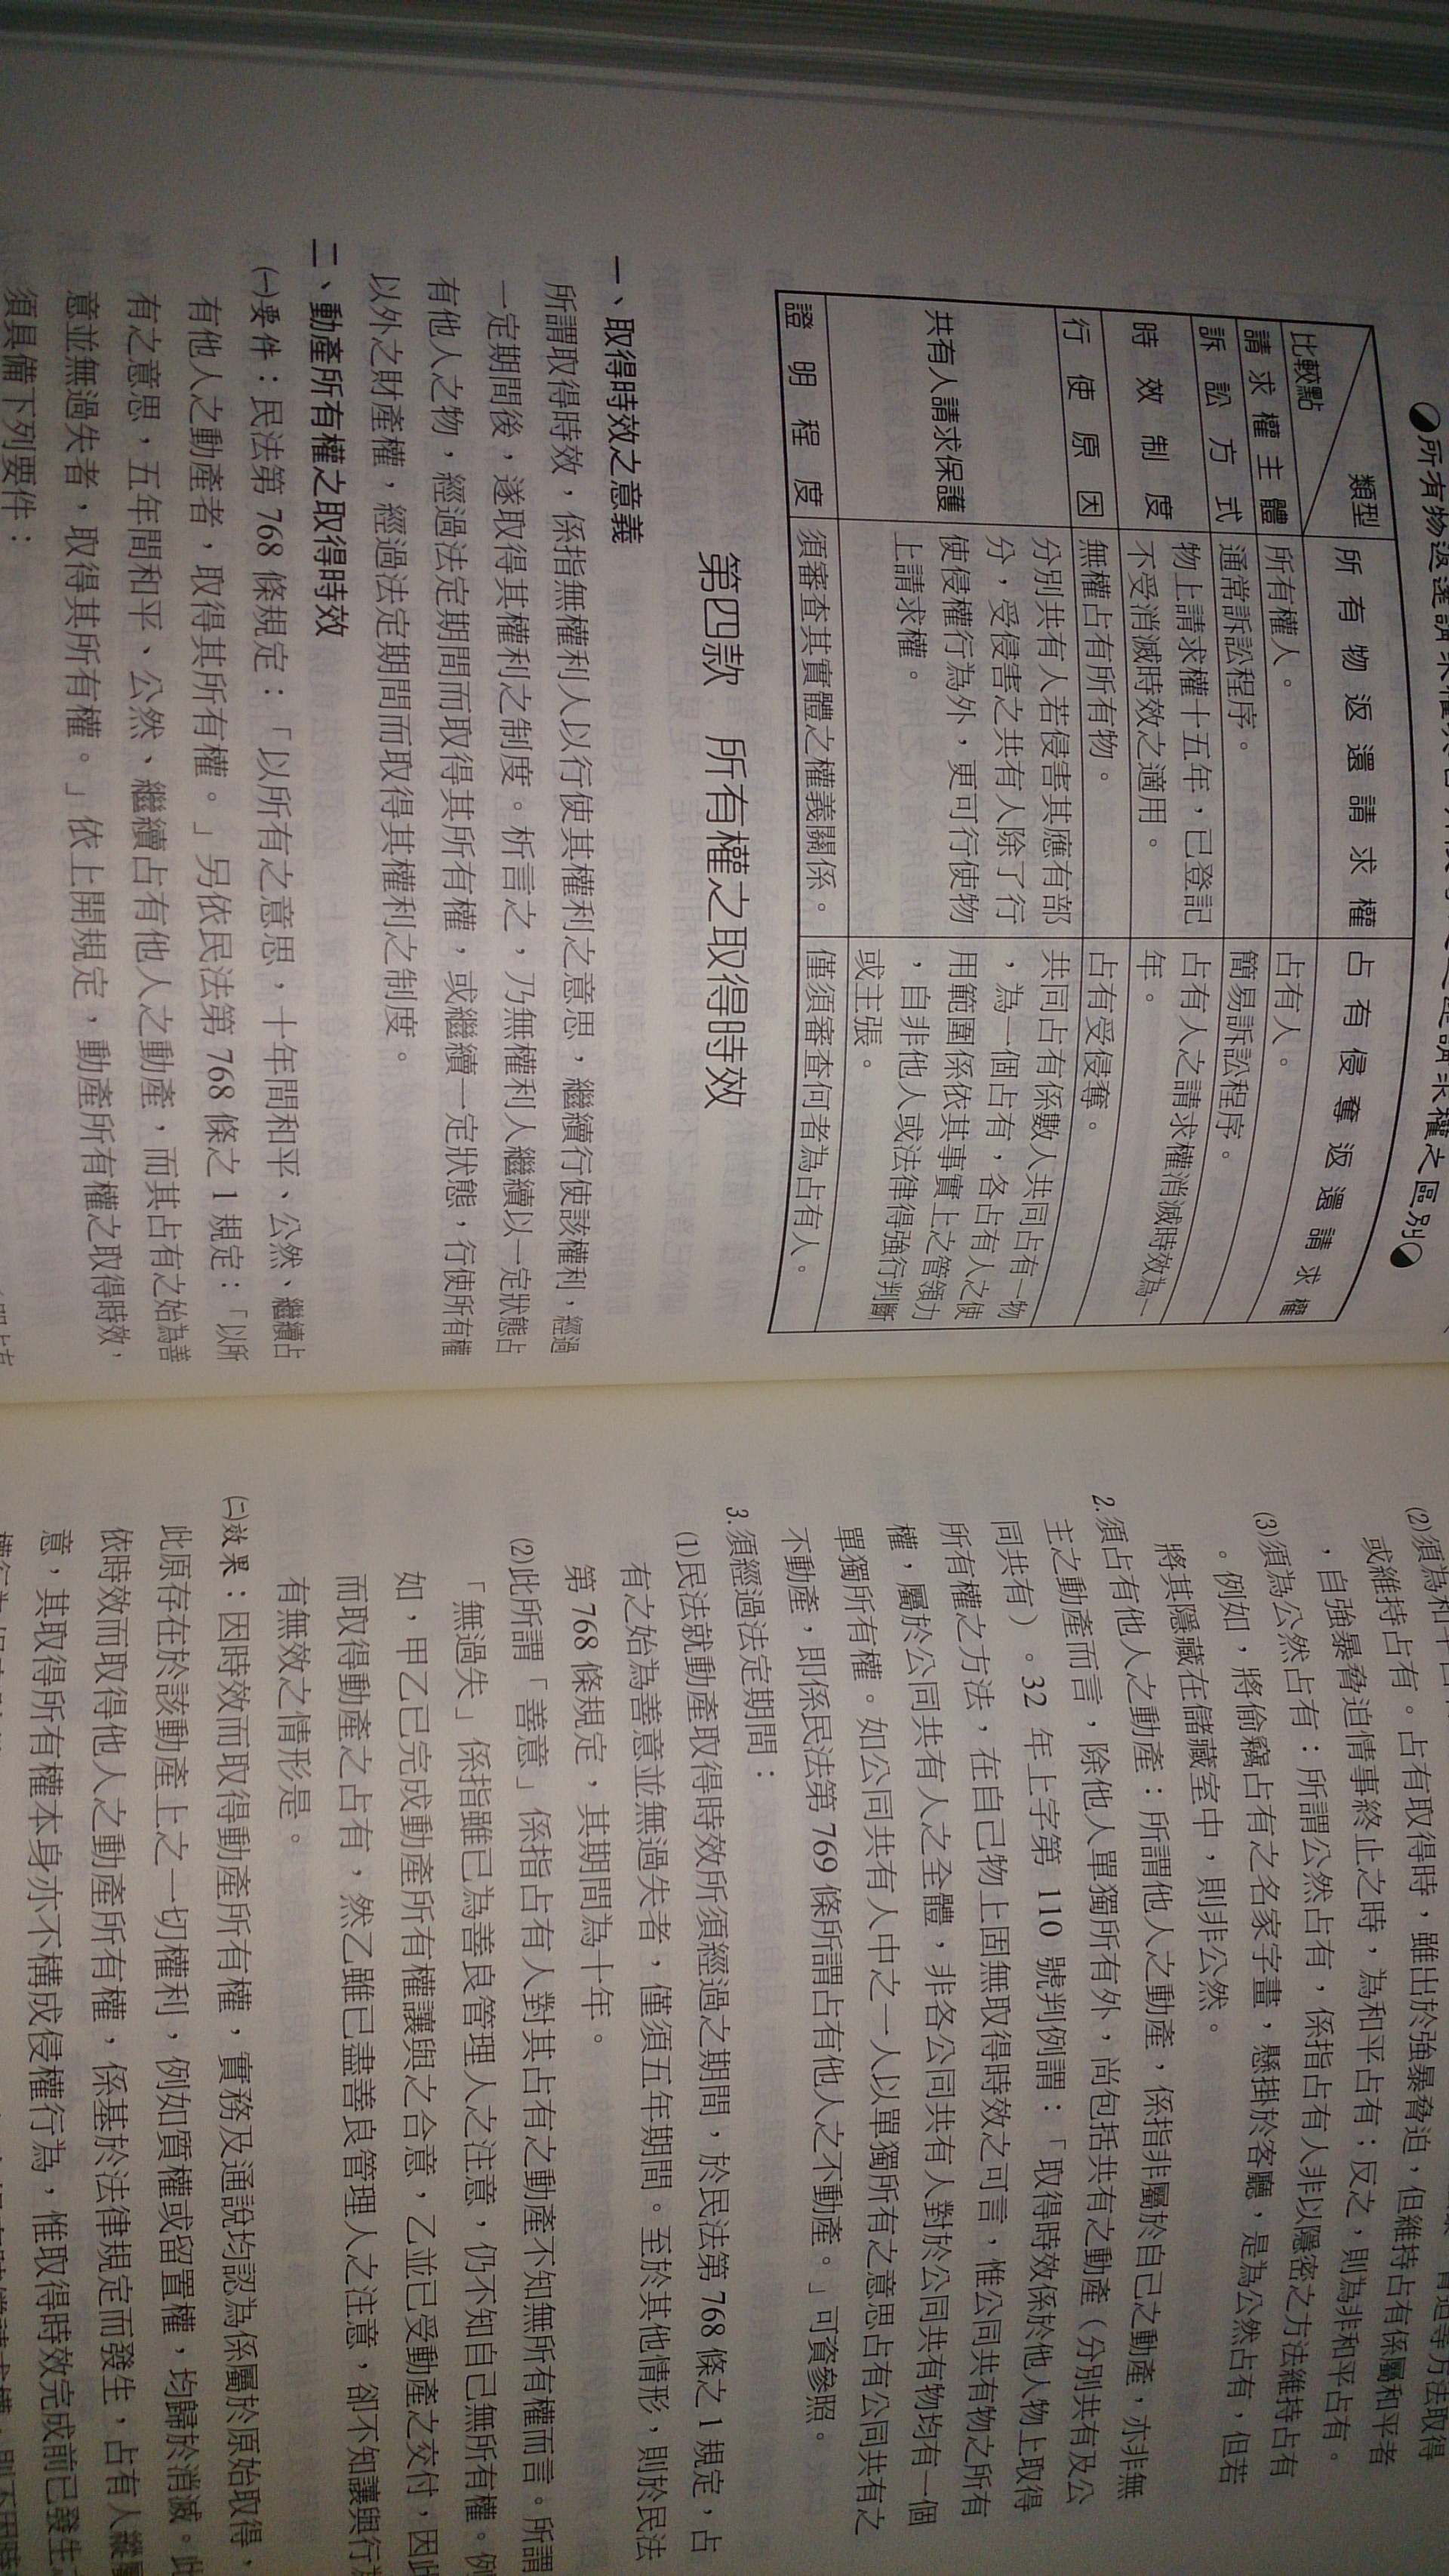 所有物返還請求權
請求權之區別
比較點 類型 所有物返還請求權 占有侵奪返還請求權
請求權主體 所有權人。 占有人。
訴訟方式 通常訴訟程序。 簡易訴訟程序。
時效制度 物上請求權十五年，已登記不受消滅時效之適用。 占有人之請求權消滅時效為一年。
行使原因 無權占有所有物。 占有受侵奪。
共有人請求保護 分別共有人若侵害其應有部分，受侵害之共有人除了行使侵權行為外，更可行使物上請求權。 共同占有係數人共同占有一物，為一個占有，各占有人之使用範圍係依其事實上之管領力，自非他人或法律得強行判斷或主張。
證明程度 須審查其實體之權義關係。 僅須審查何者為占有人。
第四款 所有權之取得時效
一、取得時效之意義
所謂取得時效，係指無權利人以行使其權利之意思，繼續行使該權利，經過
一定期間後，遂取得其權利之制度。析言之，乃無權利人繼續以一定狀態占
有他人之物，經過法定期間而取得其所有權，或繼續一定狀態，行使所有權
以外之財產權，經過法定期間而取得其權利之制度。
二、動產所有權之取得時效
㈠要件：民法第768條規定：「以所有之意思，十年間和平、公然、繼續占
有他人之動產者，取得其所有權。」另依民法第768條之1規定：「以所
有之意思，五年間和平、公然、繼續占有他人之動產，而其占有之始為善
意並無過失者，取得其所有權。」依上開規定，動產所有權之取得時效，
須具備下列要件：
等方法取得
或維持占有。占有取得時，雖出於強暴脅迫，但維持占有係屬和平者
，自強暴脅迫情事終止之時，為和平占有；反之，則為非和平占有。
⑶須為公然占有：所謂公然占有，係指占有人非以隱密之方法維持占有
。例如，將偷竊占有之名家字畫，懸掛於客廳，是為公然占有，但若
將其隱藏在儲藏室中，則非公然。
2.須占有他人之動產：所謂他人之動產，係指非屬於自己之動產，亦非無
主之動產而言，除他人單獨所有外，尚包括共有之動產（分別共有及公
同共有）。32年上字第110號判例謂：「取得時效係於他人物上取得
所有權之方法，在自己物上固無取得時效之可言，惟公同共有物之所有
權，屬於公同共有人之全體，非各公同共有人對於公同共有物均有一個
單獨所有權。如公同共有人中之一人以單獨所有之意思占有公同共有之
不動產，即係民法第769條所謂占有他人之不動產。」可資參照。
3.須經過法定期間：
⑴民法就動產取得時效所須經過之期間，於民法第768條之1規定，占
有之始為善意並無過失者，僅須五年期間。至於其他情形，則於民法
第768條規定，其期間為十年。
⑵此所謂「善意」係指占有人對其占有之動產不知無所有權而言。所謂
「無過失」係指雖已為善良管理人之注意，仍不知自己無所有權。例
如，甲乙已完成動產所有權讓與之合意，乙並已受動產之交付，因此
而取得動產之占有，然乙雖已盡善良管理人之注意，卻不知讓與行為
有無效之情形是。
㈡效果：因時效而取得動產所有權，實務及通說均認為係屬於原始取得，
此原存在於該動產上之一切權利，例如質權或留置權，均歸於消滅。此
依時效而取得他人之動產所有權，係基於法律規定而發生，占有人縱
意，其取得所有權本身亦不構成侵權行為，惟取得時效完成前已發生